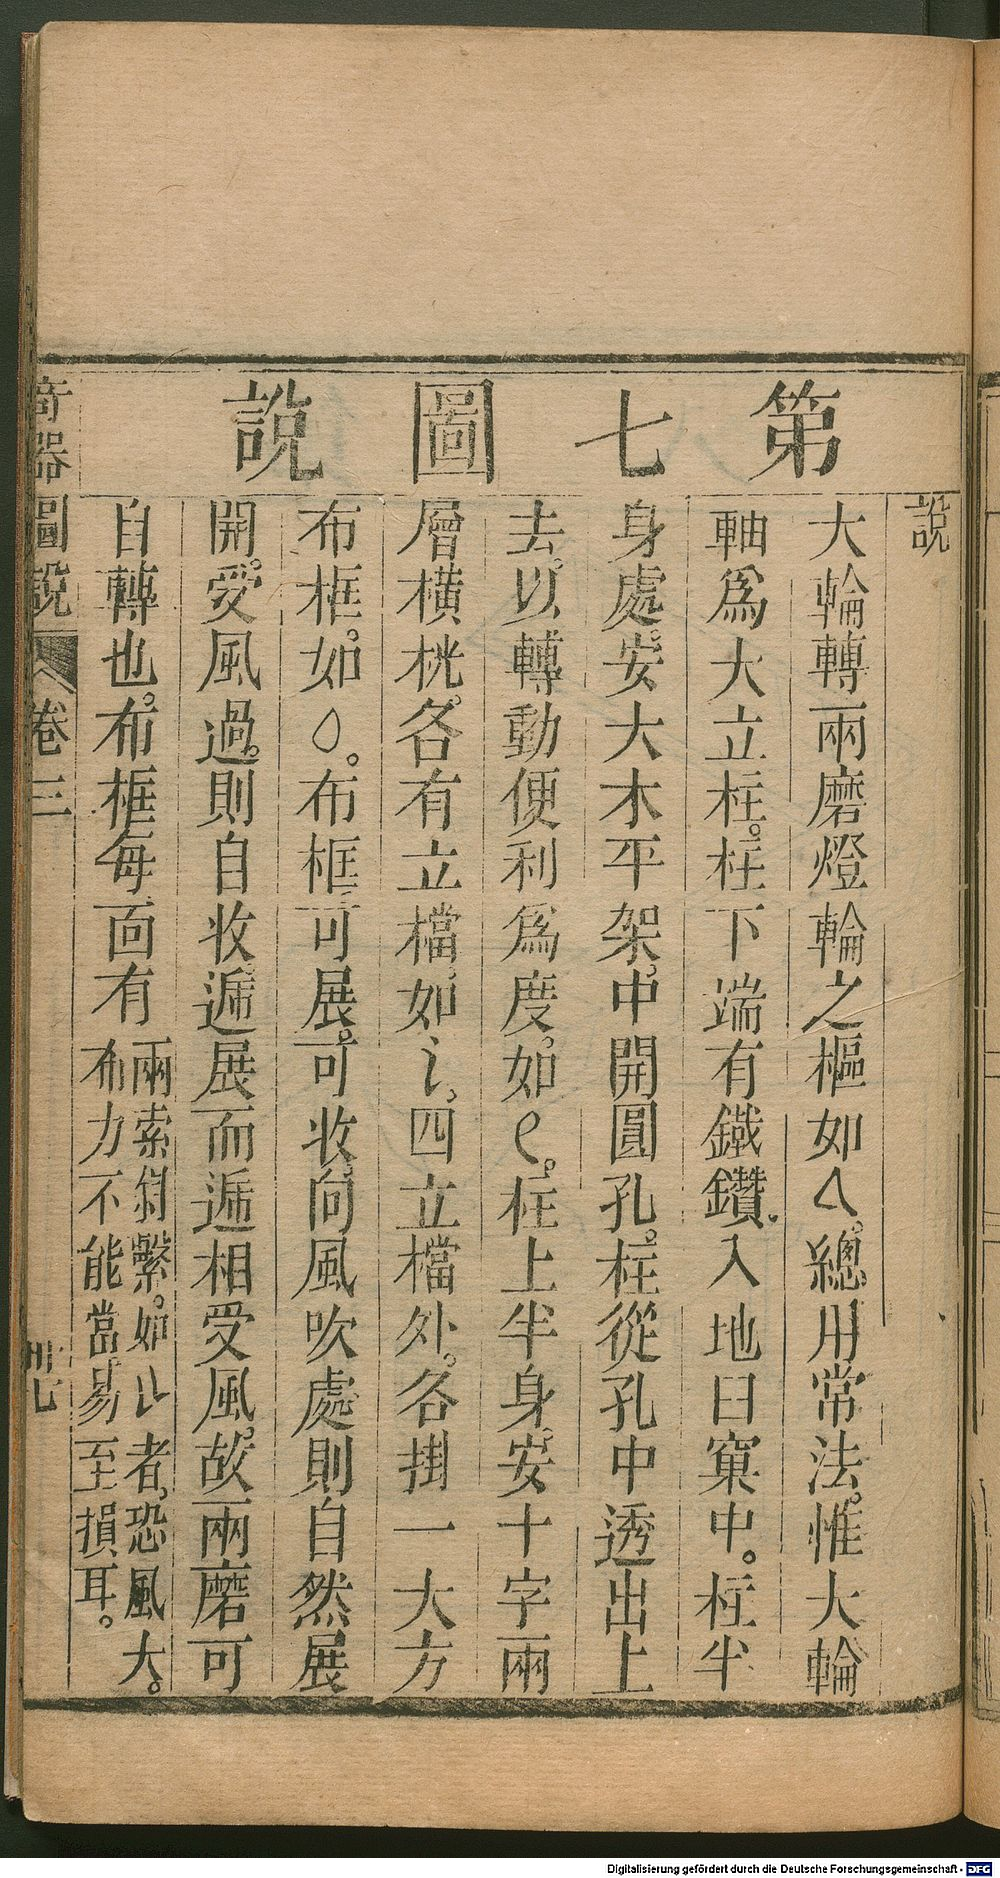 第七圖說
說
大輪轉兩磨燈輪之樞如ㄙ。總用常法。惟大輪
軸爲大立柱。柱下端有鐵鑽。入地臼窠中。柱半
身處。安大木平架。中開圓孔。柱從孔中透出上
去。以轉動便利爲度。如㇂。柱上半身。安十字兩
層橫桄。各有立檔。如讠。四立檔外。各掛一大方
布框。如○。布框可展。可收。向風吹處則自然展
開。受風過。則自收。遞展而遞相受風。故兩磨可
自轉也。布框每面有兩索斜繫。如ㄴ者。恐風大。
布力不能當。易至損耳。
奇器圖說 卷三 卅七
Digitalisierung gefördert durch die Deutsche Forschungsgemeinschaft - DFG